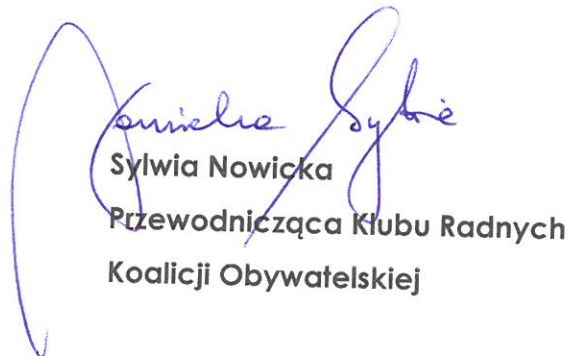 Nowicka Sylwia
Sylwia Nowicka
Przewodnicząca Klubu Radnych
Koalicji Obywatelskiej